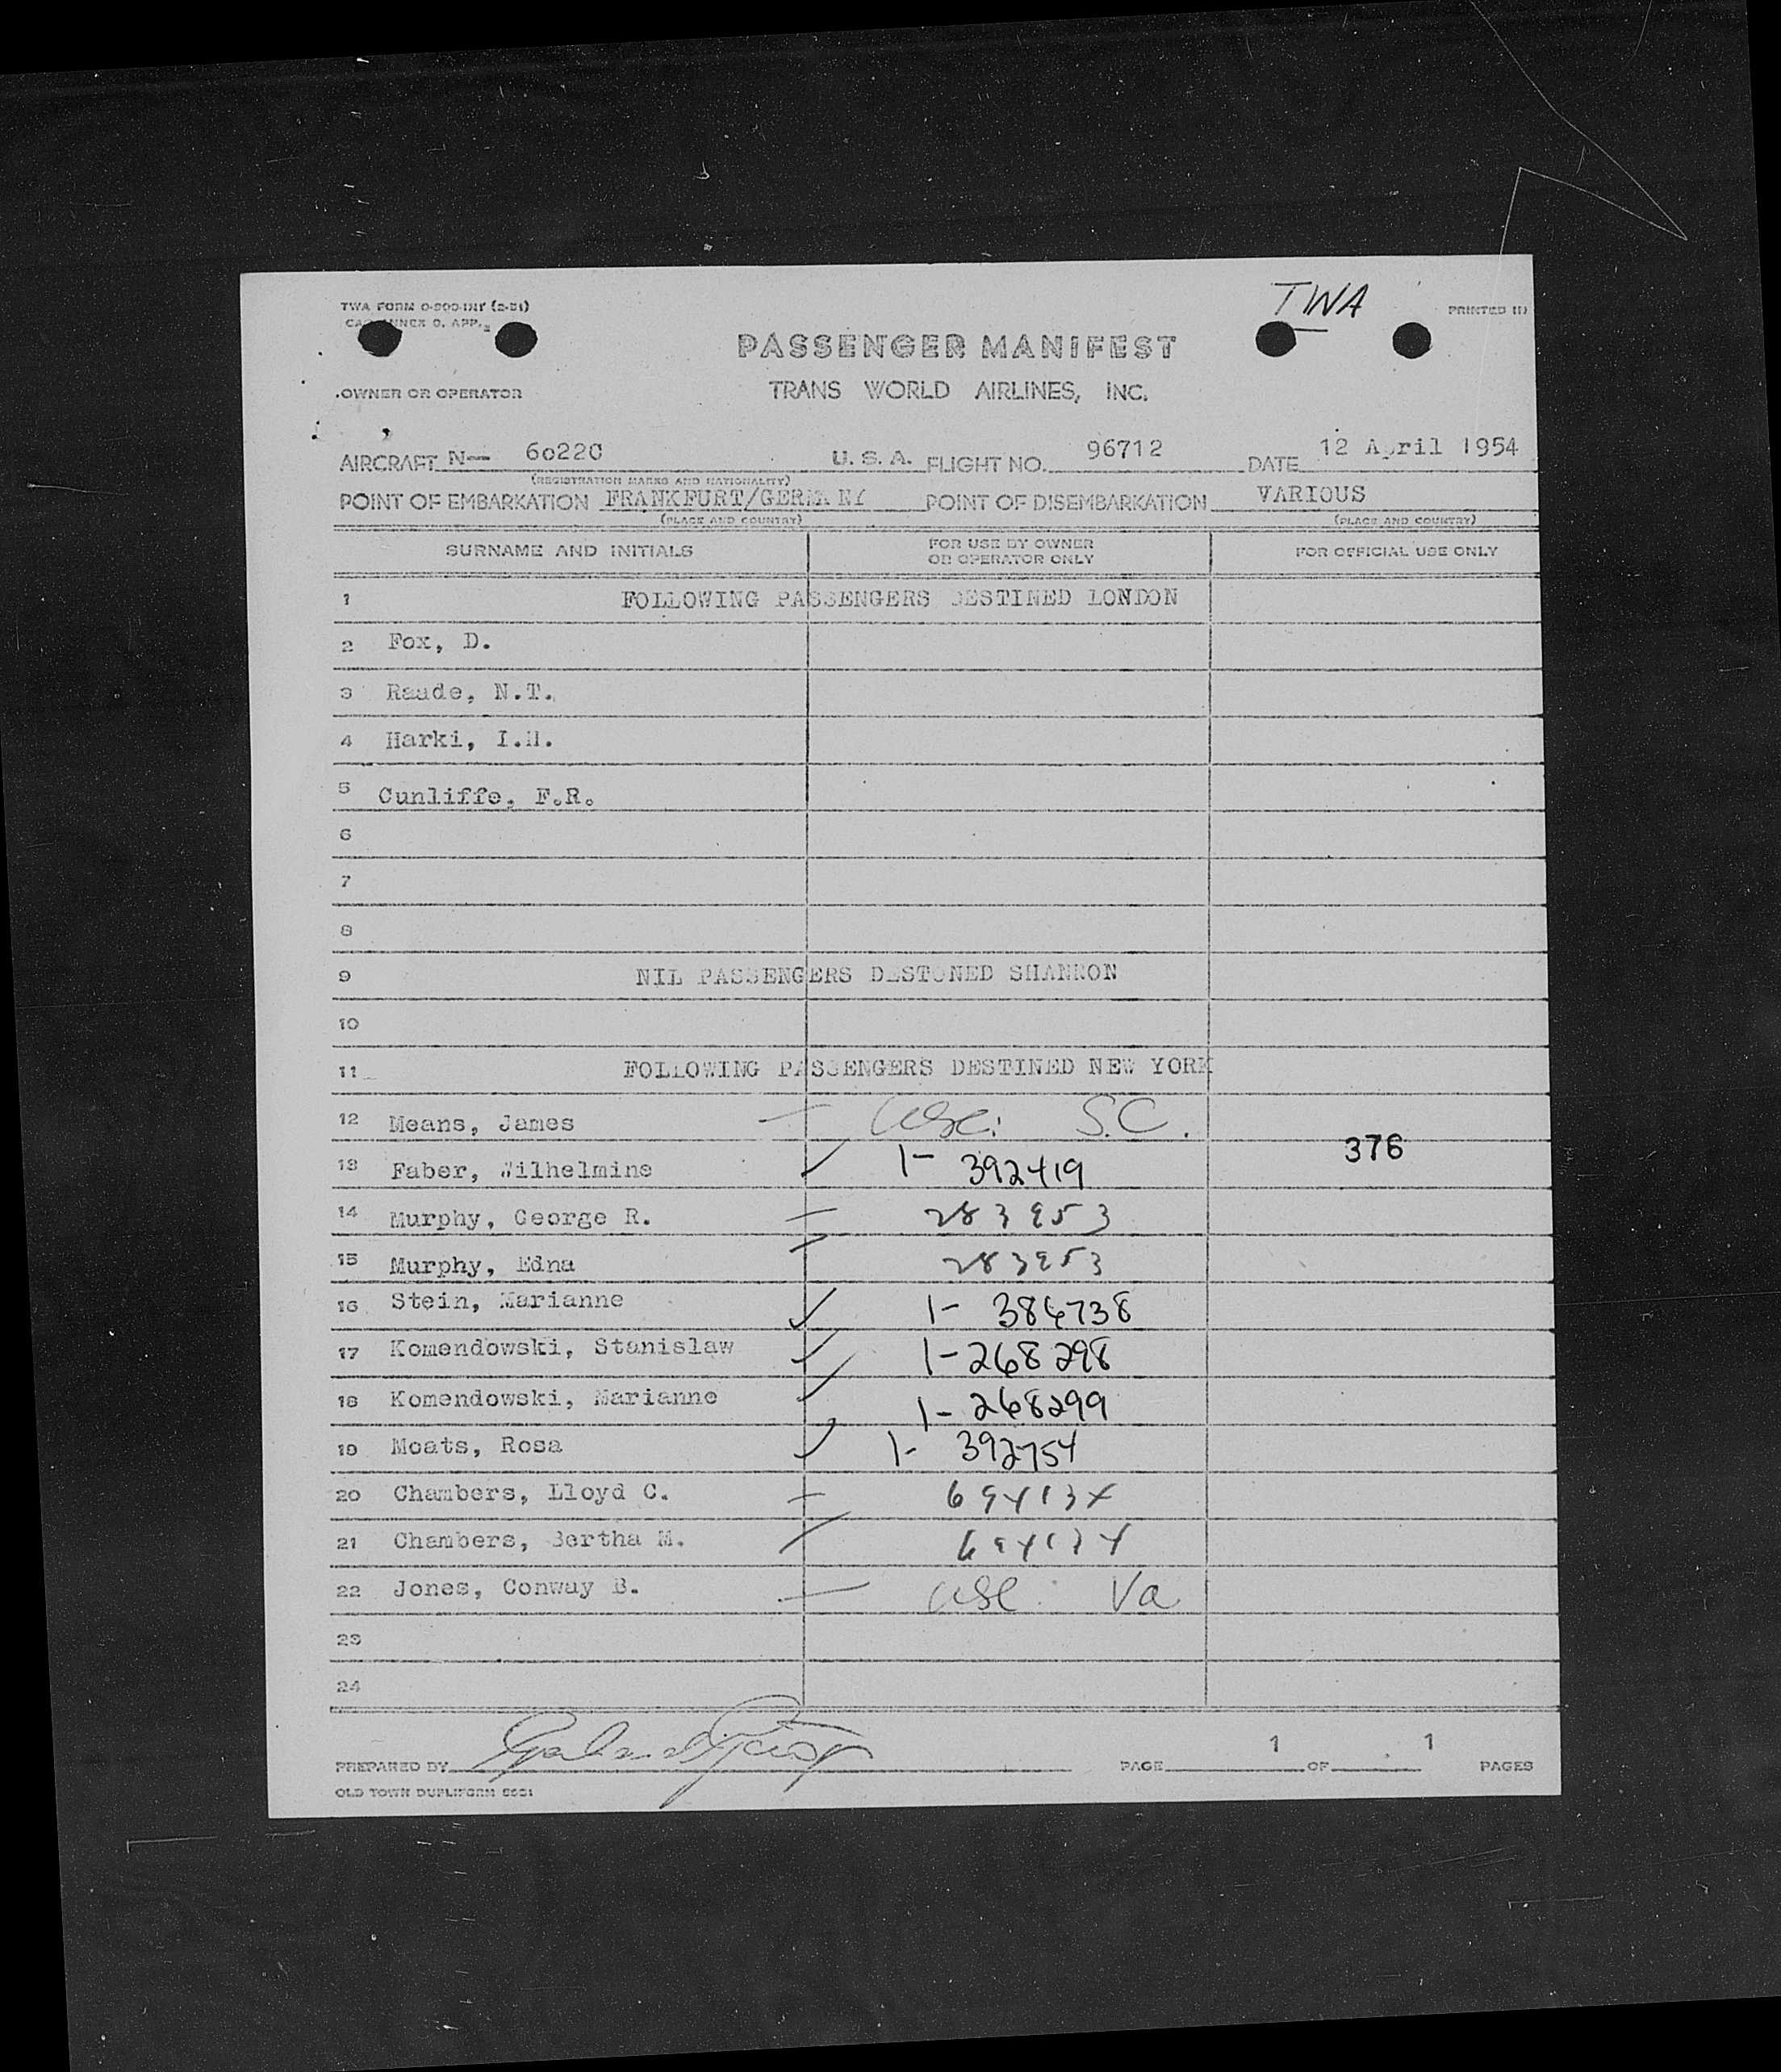 TWA FORM 0-500-INT (2-51)
TWA
PRINTED IN
ANNEX 9, APP.
PASSENGER MANIFEST
OWNER OR OPERATOR
TRANS WORLD AIRLINES, INC.
AIRCRAFT N— 6022C U. S. A. FLIGHT NO. 96712 DATE 12 April 1954
(REGISTRATION MARKS AND NATIONALITY)
POINT OF EMBARKATION FRANKFURT/GERMANY POINT OF DISEMBARKATION VARIOUS
(PLACE AND COUNTRY) (PLACE AND COUNTRY)
SURNAME AND INITIALS FOR USE BY OWNER OR OPERATOR ONLY FOR OFFICIAL USE ONLY
1 FOLLOWING PASSENGERS DESTINED LONDON
2 Fox, D.
3 Raade, N.T.
4 Harki, I.H.
5 Cunliffe, F.R.
6
7
8
9 NIL PASSENGERS DESTONED SHANNON
10
11 FOLLOWING PASSENGERS DESTINED NEW YORK
12 Means, James — S.C.
376
13 Faber, Wilhelmine ✓ 1- 392419
14 Murphy, George R. — 283953
15 Murphy, Edna 283953
16 Stein, Marianne ✓ 1- 386738
17 Komendowski, Stanislaw ✓ 1-268298
18 Komendowski, Marianne ✓ 1- 268299
19 Moats, Rosa ✓ 1- 392754
20 Chambers, Lloyd C. — 694134
21 Chambers, Bertha M. 694134
22 Jones, Conway B. — Va
23
24
PREPARED BY PAGE 1 OF 1 PAGES
OLD TOWN DUPLIFORM